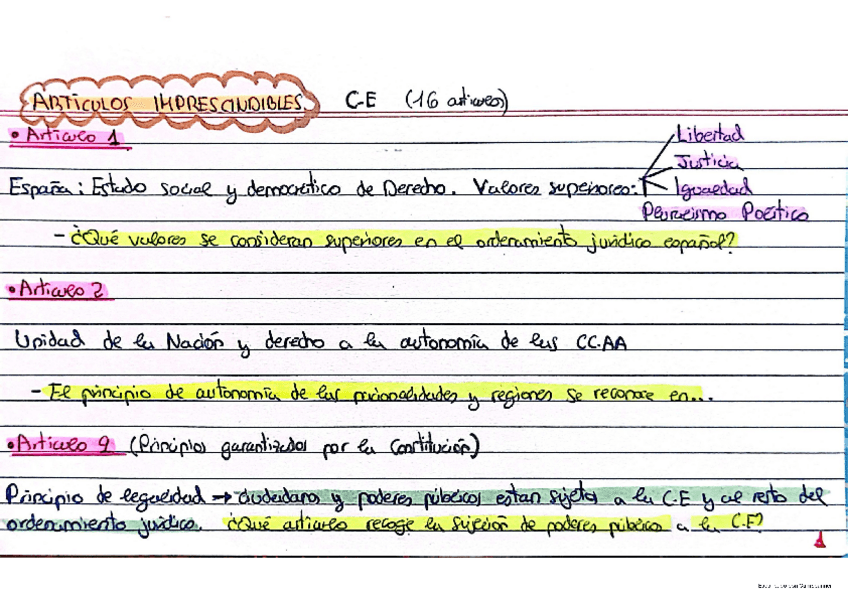 ARTÍCULOS IMPRESCINDIBLES C.E (16 artículos)
• Artículo 1
Libertad
Justicia
España: Estado social y democrático de Derecho. Valores superiores: Igualdad
Pluralismo Político
- ¿Qué valores se consideran superiores en el ordenamiento jurídico español?
• Artículo 2
Unidad de la Nación y derecho a la autonomía de las CC.AA
- El principio de autonomía de las nacionalidades y regiones se reconoce en...
• Artículo 9 (Principios garantizados por la Constitución)
Principio de legalidad → ciudadanos y poderes públicos estan sujetos a la C.E y al resto del
ordenamiento jurídico. ¿Qué artículo recoge la sujeción de poderes públicos a la C.E?
1